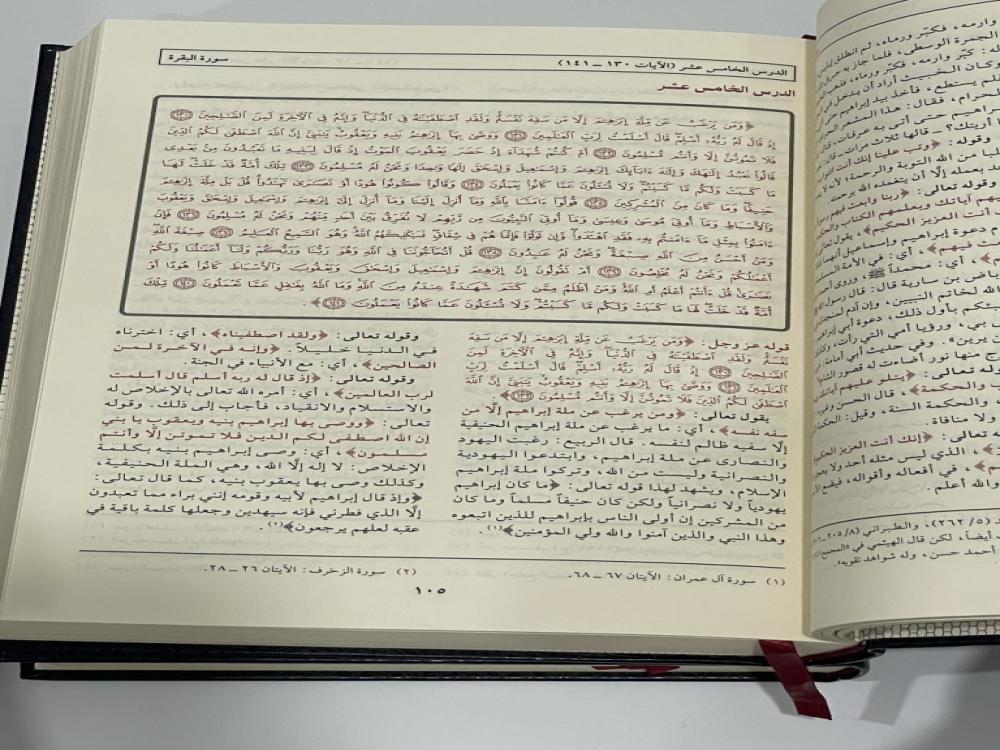 الدرس الخامس عشر (الآيات ١٣٠ ــ ١٤١) سورة البقرة
الدرس الخامس عشر
﴿وَمَن يَرْغَبُ عَن مِّلَّةِ إِبْرَٰهِـۧمَ إِلَّا مَن سَفِهَ نَفْسَهُۥ وَلَقَدِ ٱصْطَفَيْنَٰهُ فِى ٱلدُّنْيَا وَإِنَّهُۥ فِى ٱلْأَخِرَةِ لَمِنَ ٱلصَّٰلِحِينَ ١٣٠
إِذْ قَالَ لَهُۥ رَبُّهُۥٓ أَسْلِمْ قَالَ أَسْلَمْتُ لِرَبِّ ٱلْعَٰلَمِينَ ١٣١ وَوَصَّىٰ بِهَآ إِبْرَٰهِـۧمُ بَنِيهِ وَيَعْقُوبُ يَٰبَنِىَّ إِنَّ ٱللَّهَ ٱصْطَفَىٰ لَكُمُ ٱلدِّينَ
فَلَا تَمُوتُنَّ إِلَّا وَأَنتُم مُّسْلِمُونَ ١٣٢ أَمْ كُنتُمْ شُهَدَآءَ إِذْ حَضَرَ يَعْقُوبَ ٱلْمَوْتُ إِذْ قَالَ لِبَنِيهِ مَا تَعْبُدُونَ مِنۢ بَعْدِى
قَالُوا۟ نَعْبُدُ إِلَٰهَكَ وَإِلَٰهَ ءَابَآئِكَ إِبْرَٰهِـۧمَ وَإِسْمَٰعِيلَ وَإِسْحَٰقَ إِلَٰهًا وَٰحِدًا وَنَحْنُ لَهُۥ مُسْلِمُونَ ١٣٣ تِلْكَ أُمَّةٌ قَدْ خَلَتْ لَهَا
مَا كَسَبَتْ وَلَكُم مَّا كَسَبْتُمْ وَلَا تُسْـَٔلُونَ عَمَّا كَانُوا۟ يَعْمَلُونَ ١٣٤ وَقَالُوا۟ كُونُوا۟ هُودًا أَوْ نَصَٰرَىٰ تَهْتَدُوا۟ قُلْ بَلْ مِلَّةَ إِبْرَٰهِـۧمَ
حَنِيفًا وَمَا كَانَ مِنَ ٱلْمُشْرِكِينَ ١٣٥ قُولُوٓا۟ ءَامَنَّا بِٱللَّهِ وَمَآ أُنزِلَ إِلَيْنَا وَمَآ أُنزِلَ إِلَىٰٓ إِبْرَٰهِـۧمَ وَإِسْمَٰعِيلَ وَإِسْحَٰقَ وَيَعْقُوبَ
وَٱلْأَسْبَاطِ وَمَآ أُوتِىَ مُوسَىٰ وَعِيسَىٰ وَمَآ أُوتِىَ ٱلنَّبِيُّونَ مِن رَّبِّهِمْ لَا نُفَرِّقُ بَيْنَ أَحَدٍ مِّنْهُمْ وَنَحْنُ لَهُۥ مُسْلِمُونَ ١٣٦ فَإِنْ
ءَامَنُوا۟ بِمِثْلِ مَآ ءَامَنتُم بِهِۦ فَقَدِ ٱهْتَدَوا۟ وَّإِن تَوَلَّوْا۟ فَإِنَّمَا هُمْ فِى شِقَاقٍ فَسَيَكْفِيكَهُمُ ٱللَّهُ وَهُوَ ٱلسَّمِيعُ ٱلْعَلِيمُ ١٣٧ صِبْغَةَ ٱللَّهِ
وَمَنْ أَحْسَنُ مِنَ ٱللَّهِ صِبْغَةً وَنَحْنُ لَهُۥ عَٰبِدُونَ ١٣٨ قُلْ أَتُحَآجُّونَنَا فِى ٱللَّهِ وَهُوَ رَبُّنَا وَرَبُّكُمْ وَلَنَآ أَعْمَٰلُنَا وَلَكُمْ
أَعْمَٰلُكُمْ وَنَحْنُ لَهُۥ مُخْلِصُونَ ١٣٩ أَمْ تَقُولُونَ إِنَّ إِبْرَٰهِـۧمَ وَإِسْمَٰعِيلَ وَإِسْحَٰقَ وَيَعْقُوبَ وَٱلْأَسْبَاطَ كَانُوا۟ هُودًا أَوْ
نَصَٰرَىٰ قُلْ ءَأَنتُمْ أَعْلَمُ أَمِ ٱللَّهُ وَمَنْ أَظْلَمُ مِمَّن كَتَمَ شَهَٰدَةً عِندَهُۥ مِنَ ٱللَّهِ وَمَا ٱللَّهُ بِغَٰفِلٍ عَمَّا تَعْمَلُونَ ١٤٠ تِلْكَ
أُمَّةٌ قَدْ خَلَتْ لَهَا مَا كَسَبَتْ وَلَكُم مَّا كَسَبْتُمْ وَلَا تُسْـَٔلُونَ عَمَّا كَانُوا۟ يَعْمَلُونَ ١٤١﴾.
قوله عز وجل: ﴿وَمَن يَرْغَبُ عَن مِّلَّةِ إِبْرَٰهِـۧمَ إِلَّا مَن سَفِهَ
نَفْسَهُۥ وَلَقَدِ ٱصْطَفَيْنَٰهُ فِى ٱلدُّنْيَا وَإِنَّهُۥ فِى ٱلْأَخِرَةِ لَمِنَ
ٱلصَّٰلِحِينَ ١٣٠ إِذْ قَالَ لَهُۥ رَبُّهُۥٓ أَسْلِمْ قَالَ أَسْلَمْتُ لِرَبِّ
ٱلْعَٰلَمِينَ ١٣١ وَوَصَّىٰ بِهَآ إِبْرَٰهِـۧمُ بَنِيهِ وَيَعْقُوبُ يَٰبَنِىَّ إِنَّ ٱللَّهَ
ٱصْطَفَىٰ لَكُمُ ٱلدِّينَ فَلَا تَمُوتُنَّ إِلَّا وَأَنتُم مُّسْلِمُونَ ١٣٢﴾.
يقول تعالى: ﴿ومن يرغب عن ملة إبراهيم إلّا من
سفه نفسه﴾، أي: ما يرغب عن ملة إبراهيم الحنيفية
إلّا سفيه ظالم لنفسه. قال الربيع: رغبت اليهود
والنصارى عن ملة إبراهيم، وابتدعوا اليهودية
والنصرانية وليست من الله، وتركوا ملة إبراهيم
الإسلام، ويشهد لهذا قوله تعالى: ﴿ما كان إبراهيم
يهودياً ولا نصرانياً ولكن كان حنيفاً مسلماً وما كان
من المشركين إن أولى الناس بإبراهيم للذين اتبعوه
وهذا النبي والذين آمنوا والله ولي المؤمنين﴾(١).
وقوله تعالى: ﴿ولقد اصطفيناه﴾، أي: اخترناه
في الدنيا خليلاً. ﴿وإنه في الآخرة لمن
الصالحين﴾، أي: مع الأنبياء في الجنة.
وقوله تعالى: ﴿إذ قال له ربه أسلم قال أسلمت
لرب العالمين﴾، أي: أمره الله تعالى بالإخلاص له
والاستسلام والانقياد، فأجاب إلى ذلك. وقوله
تعالى: ﴿ووصى بها إبراهيم بنيه ويعقوب يا بني
إن الله اصطفى لكم الدين فلا تموتن إلّا وأنتم
مسلمون﴾، أي: وصى إبراهيم بنيه بكلمة
الإخلاص: لا إله إلّا الله، وهي الملة الحنيفية،
وكذلك وصى بها يعقوب بنيه، كما قال تعالى:
﴿وإذ قال إبراهيم لأبيه وقومه إنني براء مما تعبدون
إلّا الذي فطرني فإنه سيهدين وجعلها كلمة باقية في
عقبه لعلهم يرجعون﴾(٢).
(١) سورة آل عمران: الآيتان ٦٧ ــ ٦٨.
(٢) سورة الزخرف: الآيتان ٢٦ ــ ٢٨.
١٠٥
وارمه، فكبّر ورماه، ثم انطلق
الجمرة الوسطى، فلما جاز به
له: كبّر وارمه، فكبّر ورماه، فذهب
وكان الخبيث أراد أن يدخل في
فلم يستطع، فأخذ بيد إبراهيم حتى
الحرام، فقال: هذا المشعر
إبراهيم حتى أتى به عرفات،
أريتك؟ ـ قالها ثلاث مرات ـ قال
وقوله: ﴿وتب علينا إنك أنت